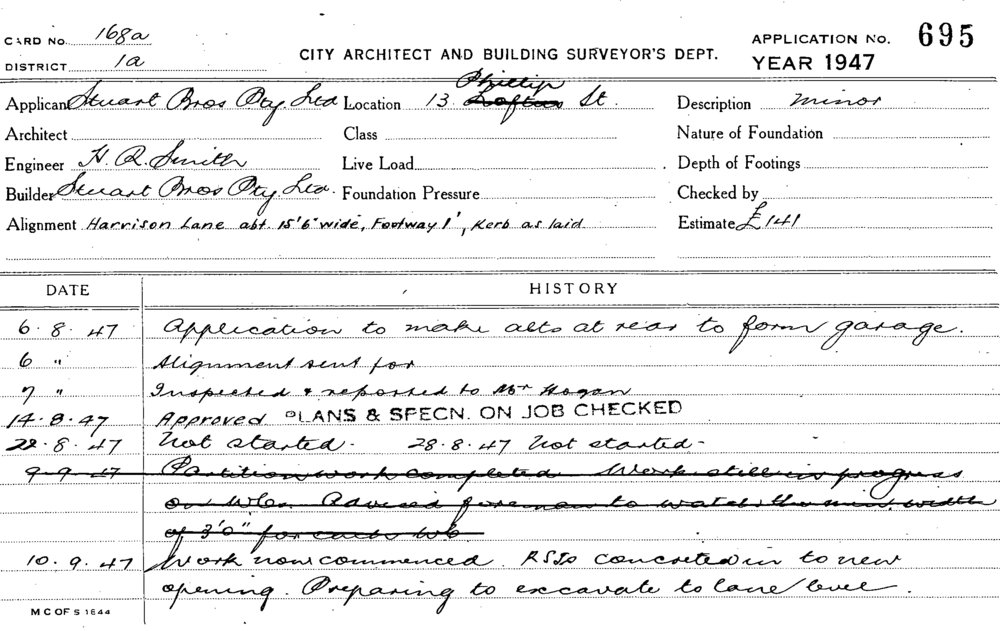 CARD No. 168a
DISTRICT 1a
CITY ARCHITECT AND BUILDING SURVEYOR'S DEPT.
APPLICATION No. 695
YEAR 1947
Applicant Stuart Bros Pty. Ltd Location 13 Phillip Loftus St. Description minor
Architect Class Nature of Foundation
Engineer H. R. Smith Live Load Depth of Footings
Builder Stuart Bros Pty. Ltd. Foundation Pressure Checked by
Alignment Harrison Lane abt. 15'6" wide, Footway 1', Kerb as laid Estimate £141
DATE HISTORY
6.8.47 Application to make alts at rear to form garage.
6 " Alignment sent for
7 " Inspected & reported to Mr Hogan
14.8.47 Approved PLANS & SPECN. ON JOB CHECKED
22.8.47 Not started - 28.8.47 Not started -
9.9.47 Partition work completed. Work still in progress
on WCs. Advised foreman to watch the min. width
of 3'0" for each WC
10.9.47 Work now commenced. RSJs concreted in to new
opening. Preparing to excavate to lane level.
M C OF S 1644